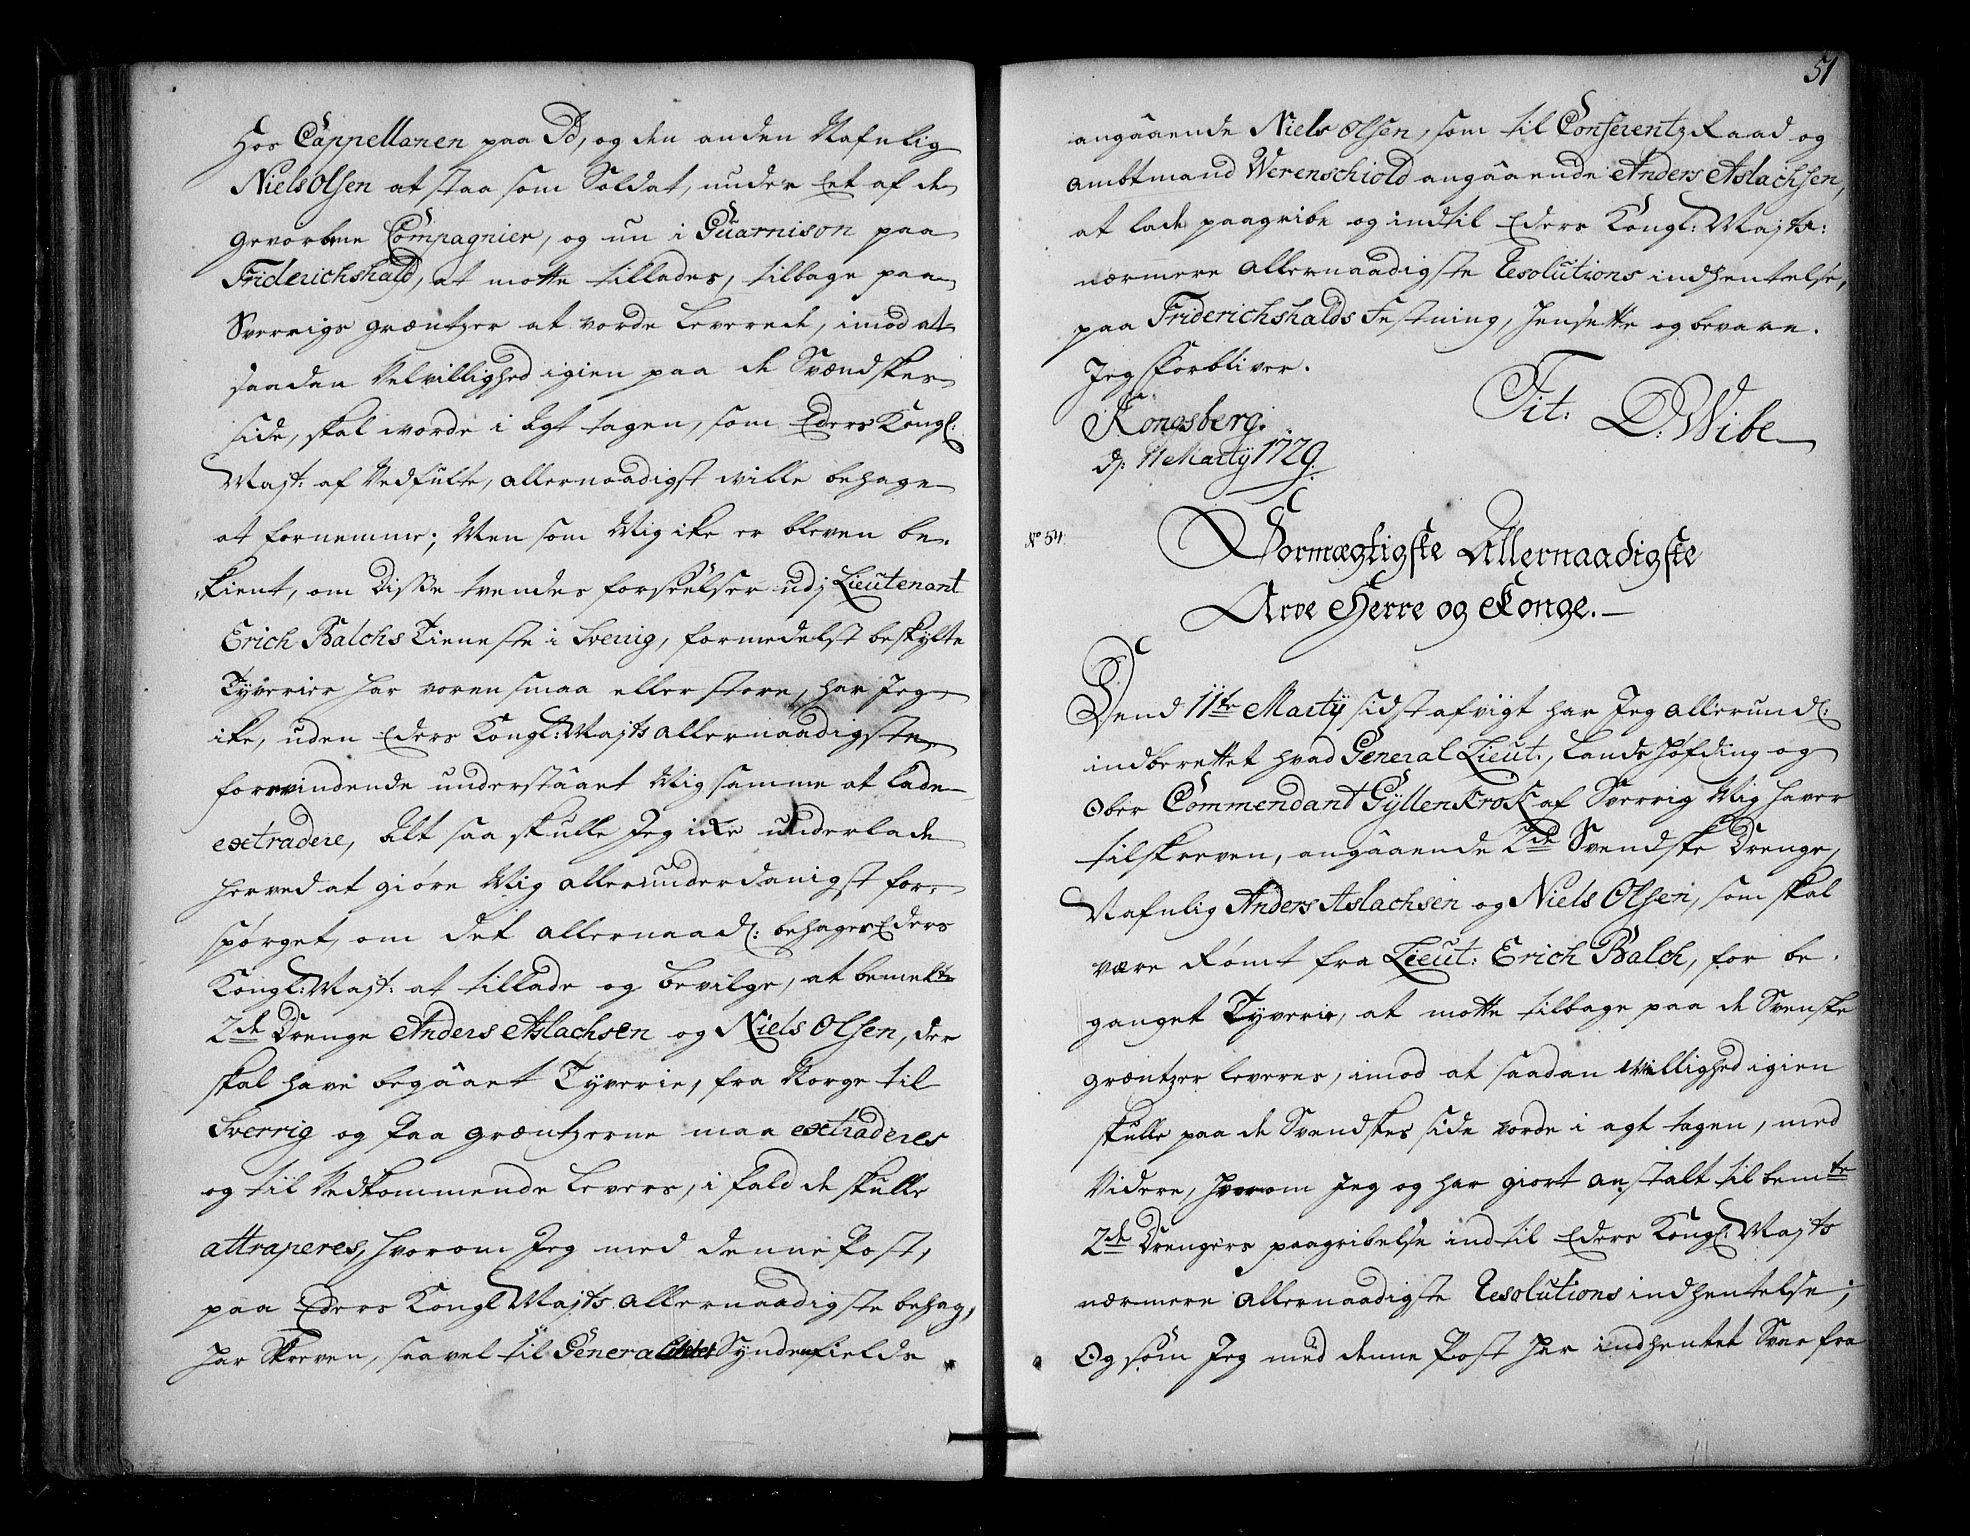 hos Cappellanen paa Id, og den anden Nafnlig
Niels Olsen at staa som Soldat, under Eet af de
gevorbne Compagnier, og nu i Guarnison paa
Friderichshald, at motte tillades, tilbage paa
Sverrigs Grentzer at vorde leverede, imod at
saadan Velvillighed igien paa de Svendskes
side, skal worde i agt tagen, som Eders Kongl:
Mayt: af Vedfulte, allernaadigst wille behage
at fornemme; Men som Mig ike er bleven be-
kient, om Disse tvendes forseelser udj Lieutenant
Erich Balchs Tieneste i Sverrig, formedelst beskylte
Tyverier har voren smaa eller store, har Jeg
ike, uden Eders Kongl: Mayts allernaadigste
forevindende understaaet Mig samme at lade
extradere, Alt saa skulle Jeg ike underlade
herved at giøre Mig allerunderdanigst for-
spørget, om det allernaad: behager Eders
Kongl: Mayt: at tillade og bevilge, at bemelte
2de Drenge Anders Aslachsen og Niels Olsen, der
skal have begaaet Tyverie, fra Norge til
Sverrig og paa grentzerne maa extraderes
og til Vedkommende levers, i fald de skulle
attraperes, hvorom Jeg med denne Post,
paa Eders Kongl Mayts allernaadigste behag,
har Skreven, saavel til General Synden fields
51
angaaende Niels Olsen, som til Conferentz Raad og
ambtmand Werenschiold angaaende Anders Aslachsen,
at lade paagribe og indtil Eders Kongl: Mayts:
nærmere allernaadigste Resolutions indhentelse,
paa Friderichshalds Festning, hensette og bevare.
Jeg forbliver.
Tit: D: Wibe
Kongsberg.
d: 11 Marty 1729.
No 54:
Stormægtigste Allernaadigste
Arve Herre og Konge.
Dend 11te Marty sidstafvigt har Jeg allerund:
indberettet hvad General Lieut:, Lands Høfding og
Ober Commendant Gyllenkrok af Sverrig Mig haver
tilskreven, angaaende 2de Svendske Drenge,
Nafnlig Anders Aslachsen og Niels Olsen, som skal
være Rømt fra Lieut: Erich Balch, for be-
ganget Tyverie, at motte tilbage paa de Svenske
grentzer leveres, imod at saadan Willighed igien
skulle paa de Svendskes side vorde i agt tagen, med
Videre, hvorom Jeg og har giort anstalt til bemte
2de Drengers paagribelse indtil Eders Kongl: Mayts
nærmere allernaadigste Resolutions indhentelse;
Og som Jeg med denne Post har indhentet Svar fra